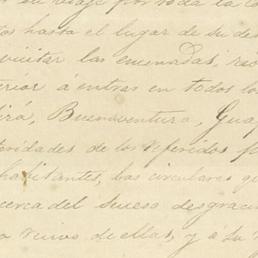 su viaje por toda la co
tos hasta el lugar de su des
visitar las ensenadas, rio
terior á entrar en todos lo
irá, Buenaventura, Gua
toridades de los referidos p
habitantes, las circulares q
cerca del suceso desgrac
o reinos de ellas, y á su